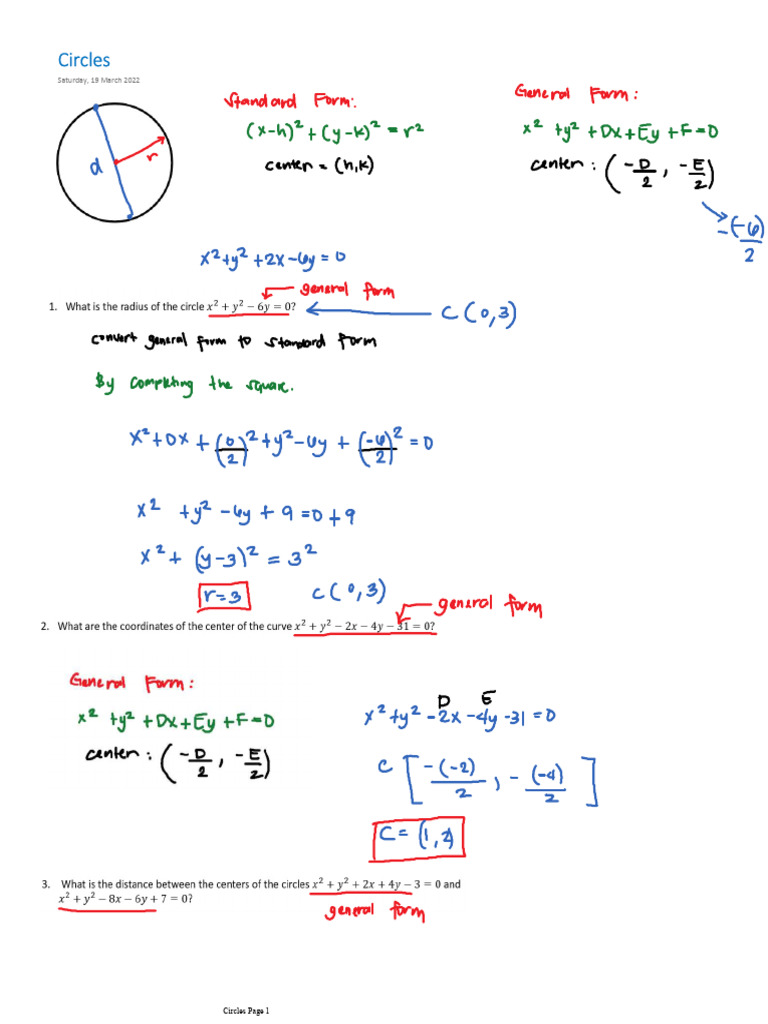 Circles
Saturday, 19 March 2022
d
r
Standard Form:
(x-h)² + (y-k)² = r²
center = (h,k)
General Form:
x² + y² + Dx + Ey + F = 0
center : (-D/2, -E/2)
-(-6)/2
x² + y² + 2x - 6y = 0
general form
1. What is the radius of the circle x² + y² − 6y = 0?
C (0,3)
convert general form to standard form
By completing the square.
x² + 0x + (0/2)² + y² - 6y + (-6/2)² = 0
x² + y² - 6y + 9 = 0 + 9
x² + (y-3)² = 3²
r = 3
C (0,3)
general form
2. What are the coordinates of the center of the curve x² + y² − 2x − 4y − 31 = 0?
General Form:
x² + y² + Dx + Ey + F = 0
center : (-D/2, -E/2)
D E
x² + y² - 2x - 4y - 31 = 0
C [-(-2)/2, -(-4)/2]
C = (1,2)
3. What is the distance between the centers of the circles x² + y² + 2x + 4y − 3 = 0 and
x² + y² − 8x − 6y + 7 = 0?
general form
Circles Page 1